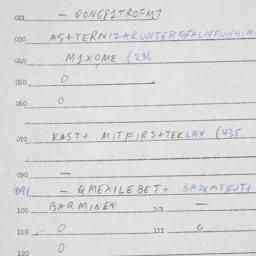 021 – DONG81TROFMJ
030 AS+TERNIZARUNTERGFALNFUNHIM
040 M1XOME (236
050 0
060 0
070 KAST+ MITFIRS+TEKLAX (435
090 –
091 – QMEXILEBET+ BADEMTEJT+
100 BARMINEN 101 –
110 0 111 0
120 0